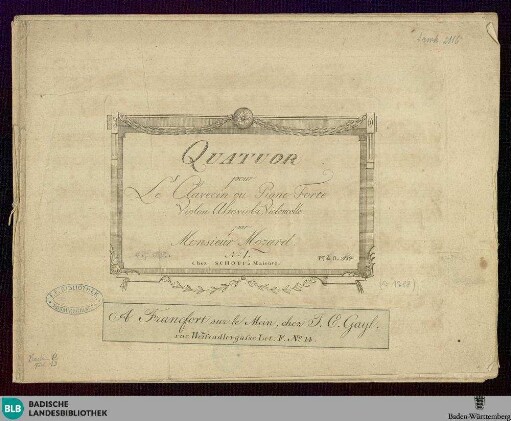 QUATUOR
pour
Le Clavecin ou Piano Forte
Violon Alto et Violoncelle
par
Monsieur Mozard
N.º 1.
chez SCHOTT à Maience.
A Francfort sur le Mein, chez J. C. Gayl.
Lit. F. N.º 14.
BLB
BADISCHE
LANDESBIBLIOTHEK
Baden-Württemberg